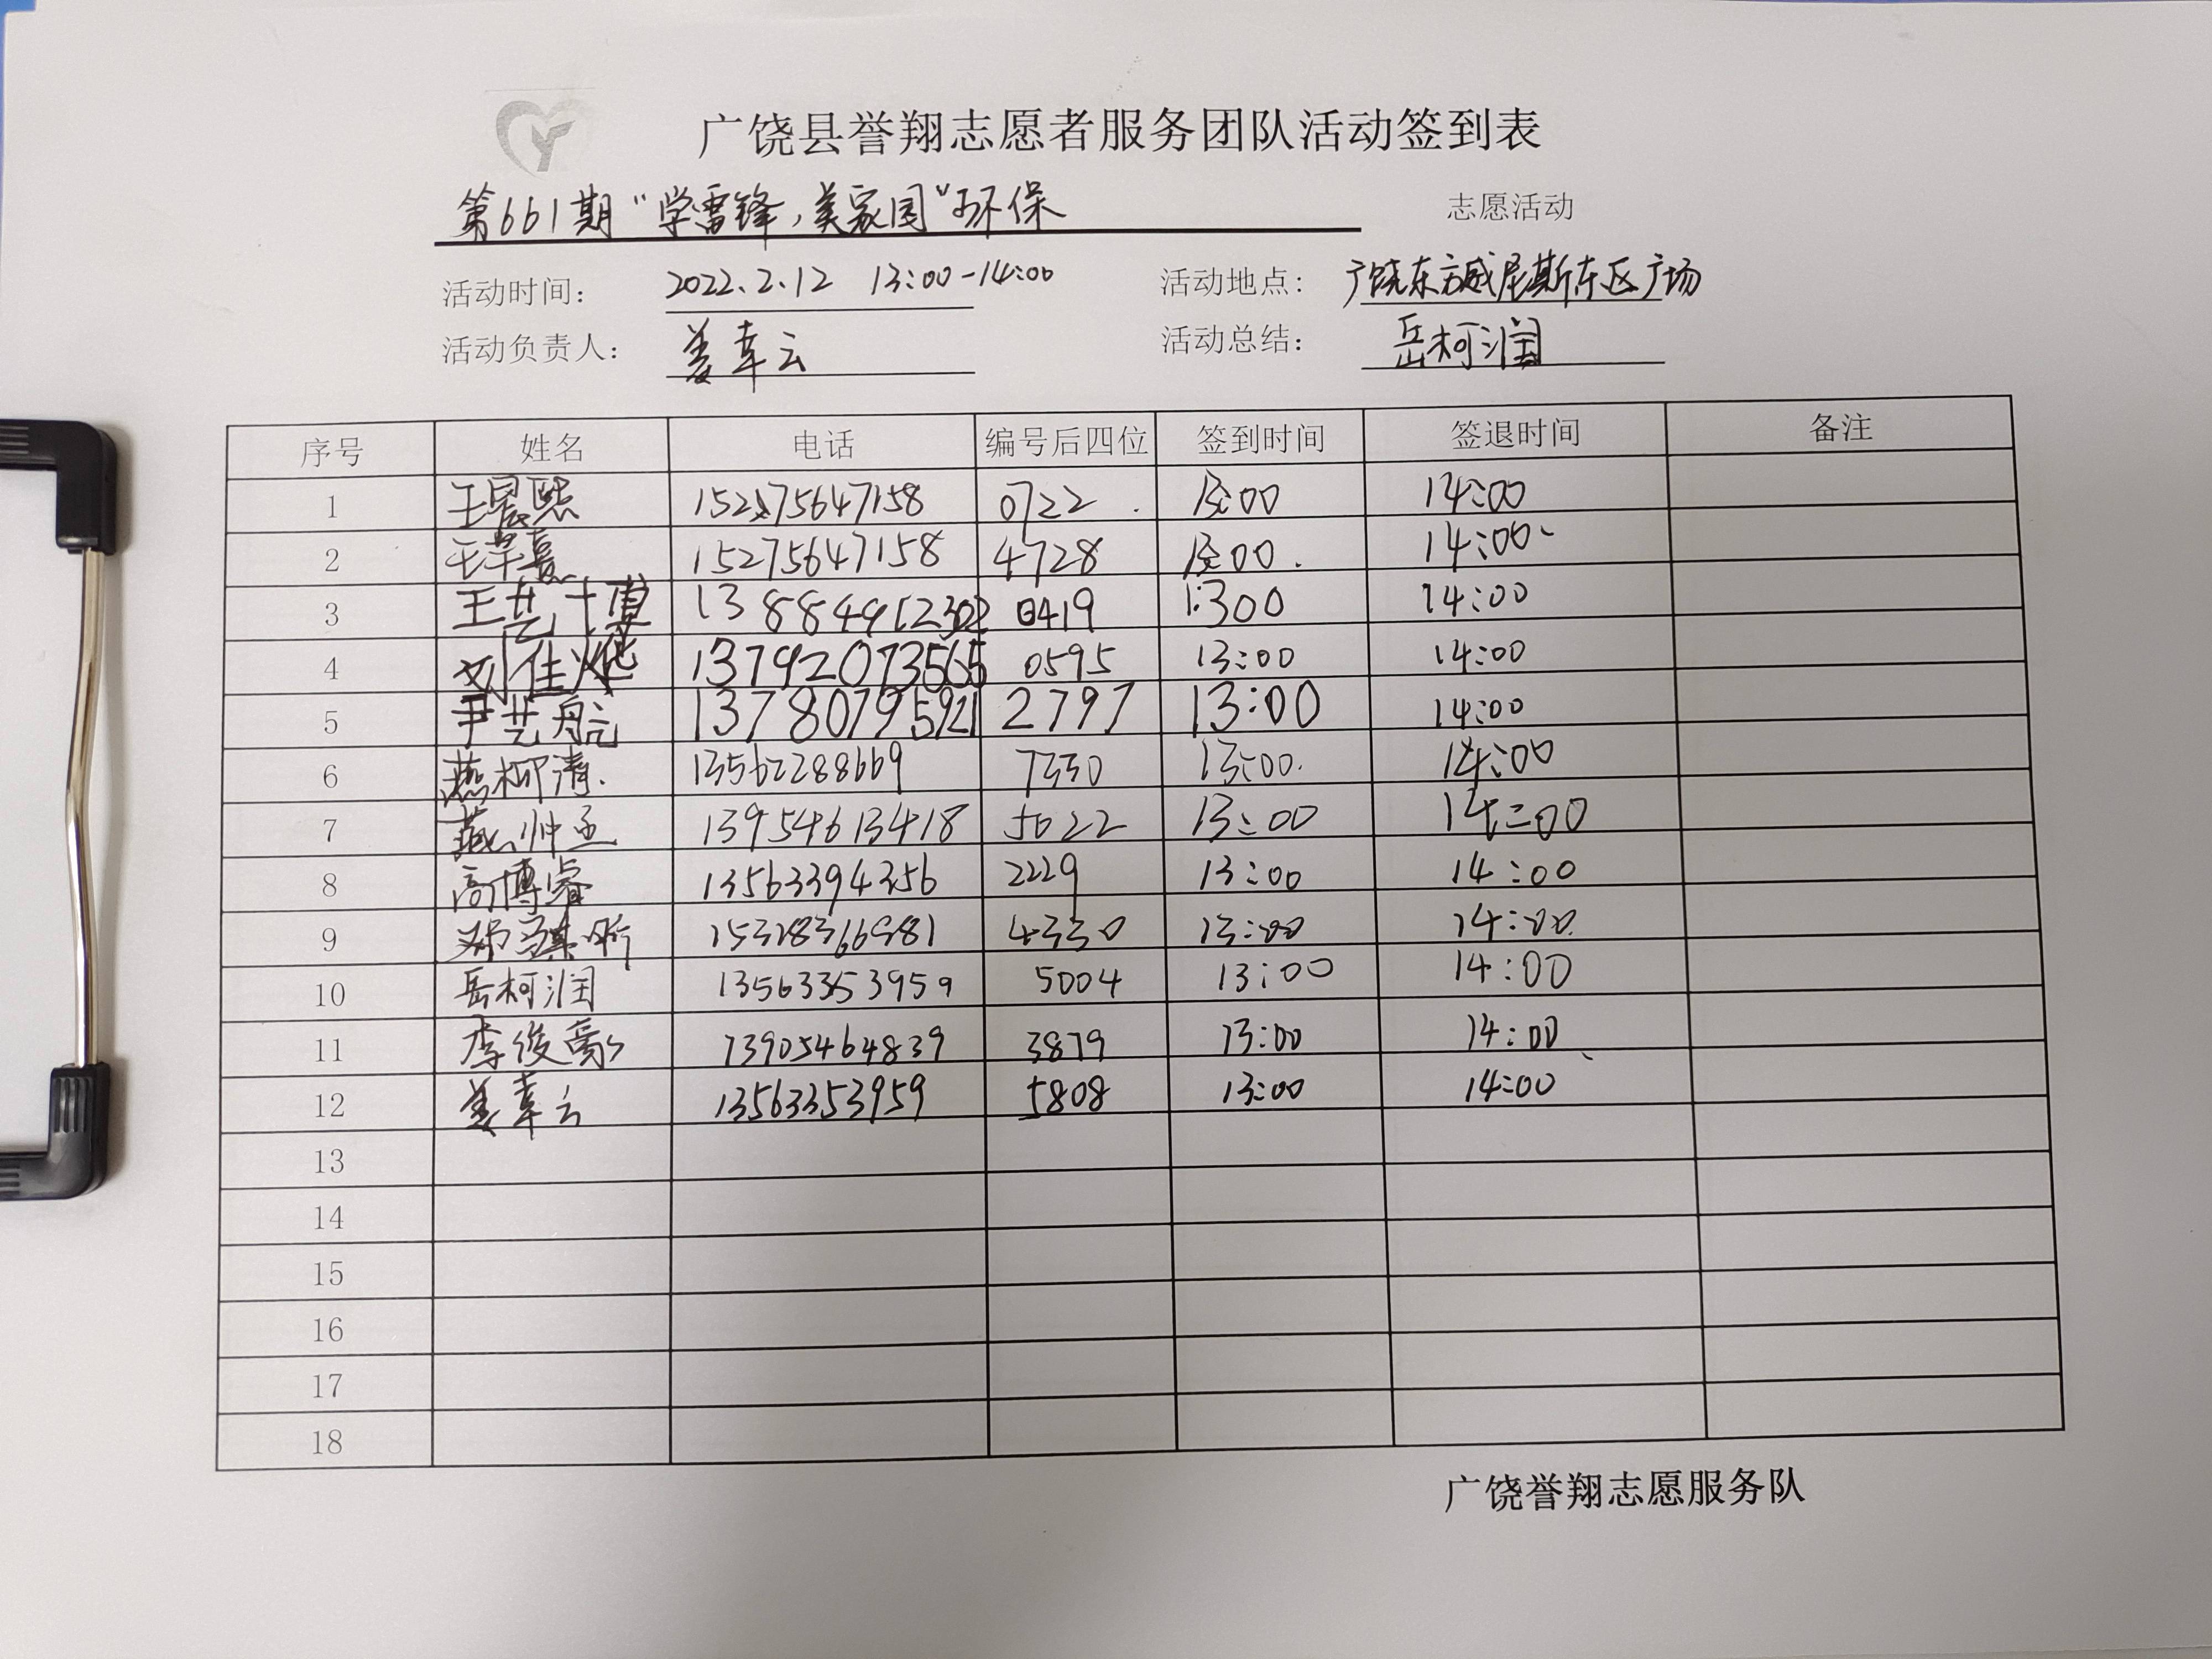 广饶县誉翔志愿者服务团队活动签到表
第661期“学雷锋,美家园”环保 志愿活动
活动时间: 2022.2.12 13:00-14:00 活动地点: 广饶东方威尼斯东区广场
活动负责人: 姜幸云 活动总结: 岳柯润
序号 姓名 电话 编号后四位 签到时间 签退时间 备注
1 王晨熙 15275647158 0722 13:00 14:00
2 15275647158 4728 13:00 14:00
3 王艺 0419 1:300 14:00
4 刘佳烨 13792073565 0595 13:00 14:00
5 尹艺航 13780795921 2797 13:00 14:00
6 燕柳清 13562288669 7330 13:00 14:00
7 燕帅丞 13954613418 5022 13:00 14:00
8 高博睿 13563394356 2229 13:00 14:00
9 邓 4330 13:00 14:00
10 岳柯润 13563353959 5004 13:00 14:00
11 李俊 13905464839 3879 13:00 14:00
12 姜幸云 13563353959 5808 13:00 14:00
13
14
15
16
17
18
广饶誉翔志愿服务队